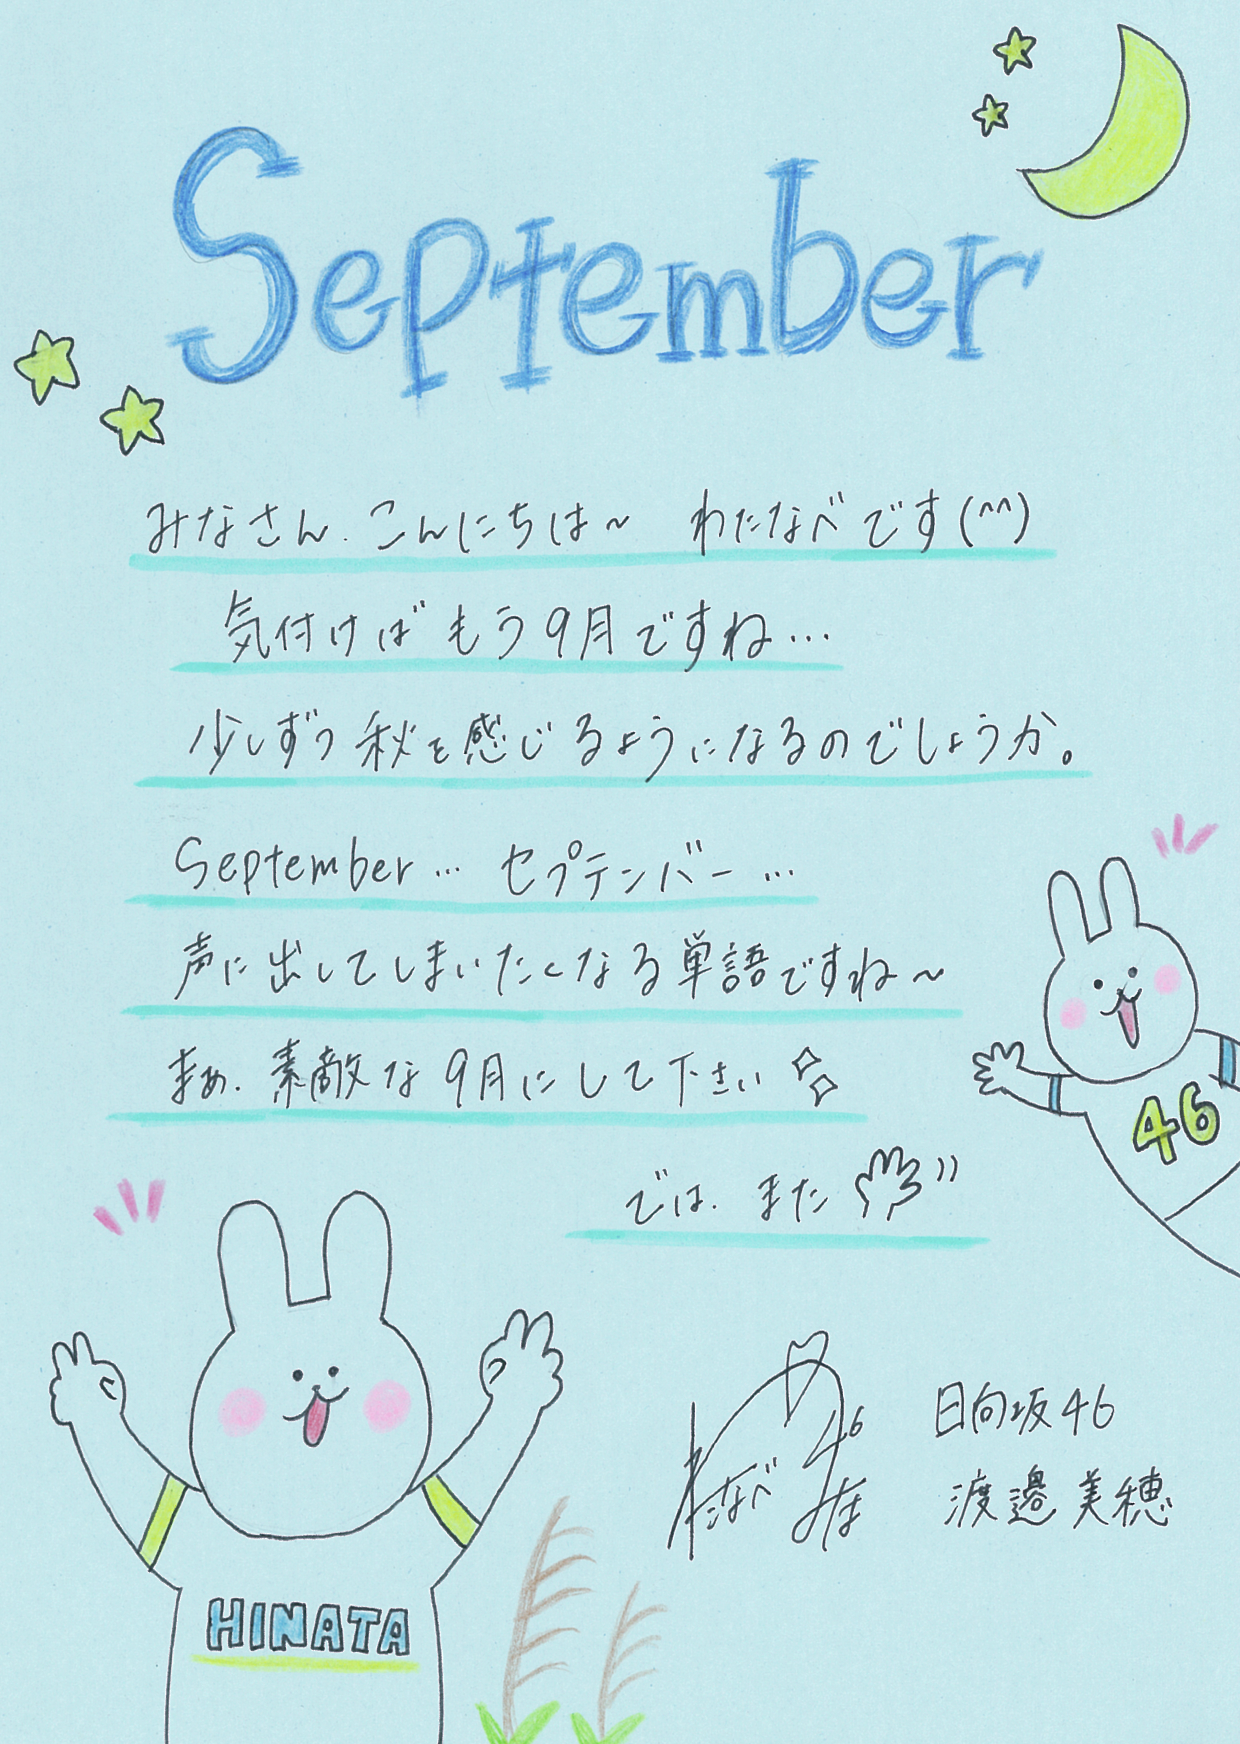 September
みなさん、こんにちは〜 わたなべです(^^)
気付けばもう9月ですね…
少しずつ秋を感じるようになるのでしょうか。
September… セプテンバー…
声に出してしまいたくなる単語ですね〜
まぁ、素敵な9月にして下さい
では、また
46
日向坂46
渡邉美穂
HINATA